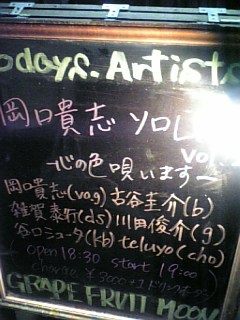 Todays. Artists
岡口貴志 ソロL
vol.
心の色唄います
岡口貴志(vo,g) 古谷圭介(b)
雑賀幸行(ds) 川田俊介(g)
谷口シュータ(kb) teluyo(cho)
open 18:30 start 19:00
charge ¥3000+2ドリンク
GRAPE FRUIT MOON